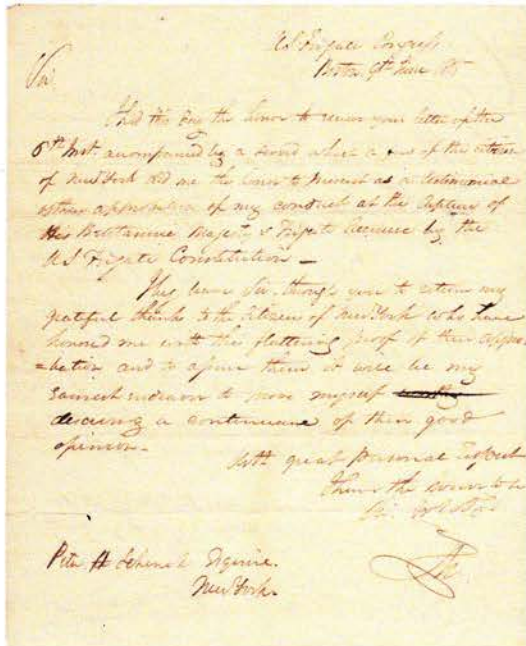 US Frigate Congress
Boston 9th June 1815
Sir
I had this day the honor to receive your letter of the
6th Inst. accompanied by a sword which a few of the citizens
of New York did me the honor to present as a testimonial
of their approbation of my conduct at the capture of
His Britannic Majesty's Frigate Guerriere by the
US Frigate Constitution —
I beg leave Sir, through you to return my
grateful thanks to the citizens of New York who have
honored me with this flattering proof of their appro
=bation and to assure them it will be my
earnest endeavor to prove myself
deserving a continuance of their good
opinion.
With great personal respect
I have the honor to be
Sir
Peter H Schenck Esquire.
New York.